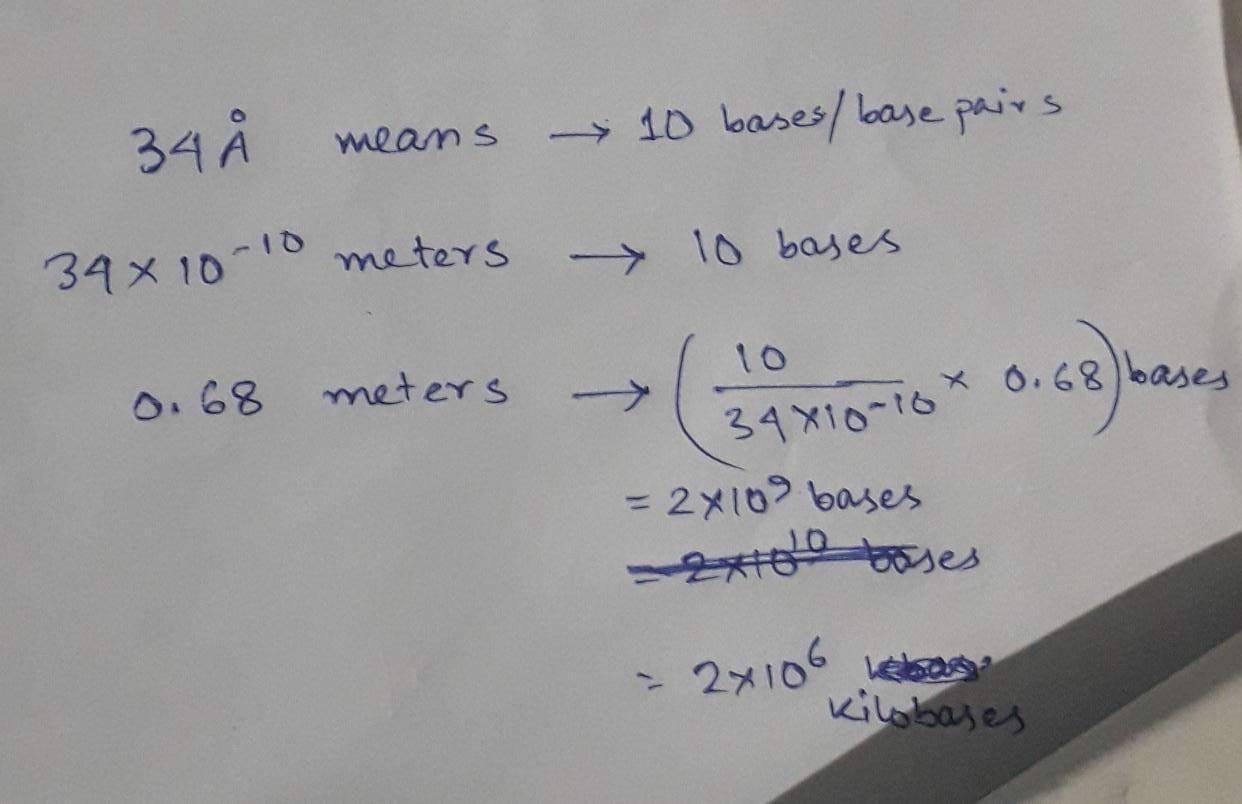 34 Å means → 10 bases/base pairs
34 × 10⁻¹⁰ meters → 10 bases
0.68 meters → (10 / 34×10⁻¹⁰ × 0.68) bases
= 2×10⁹ bases
= 2×10¹⁰ bases
= 2×10⁶
kilobases